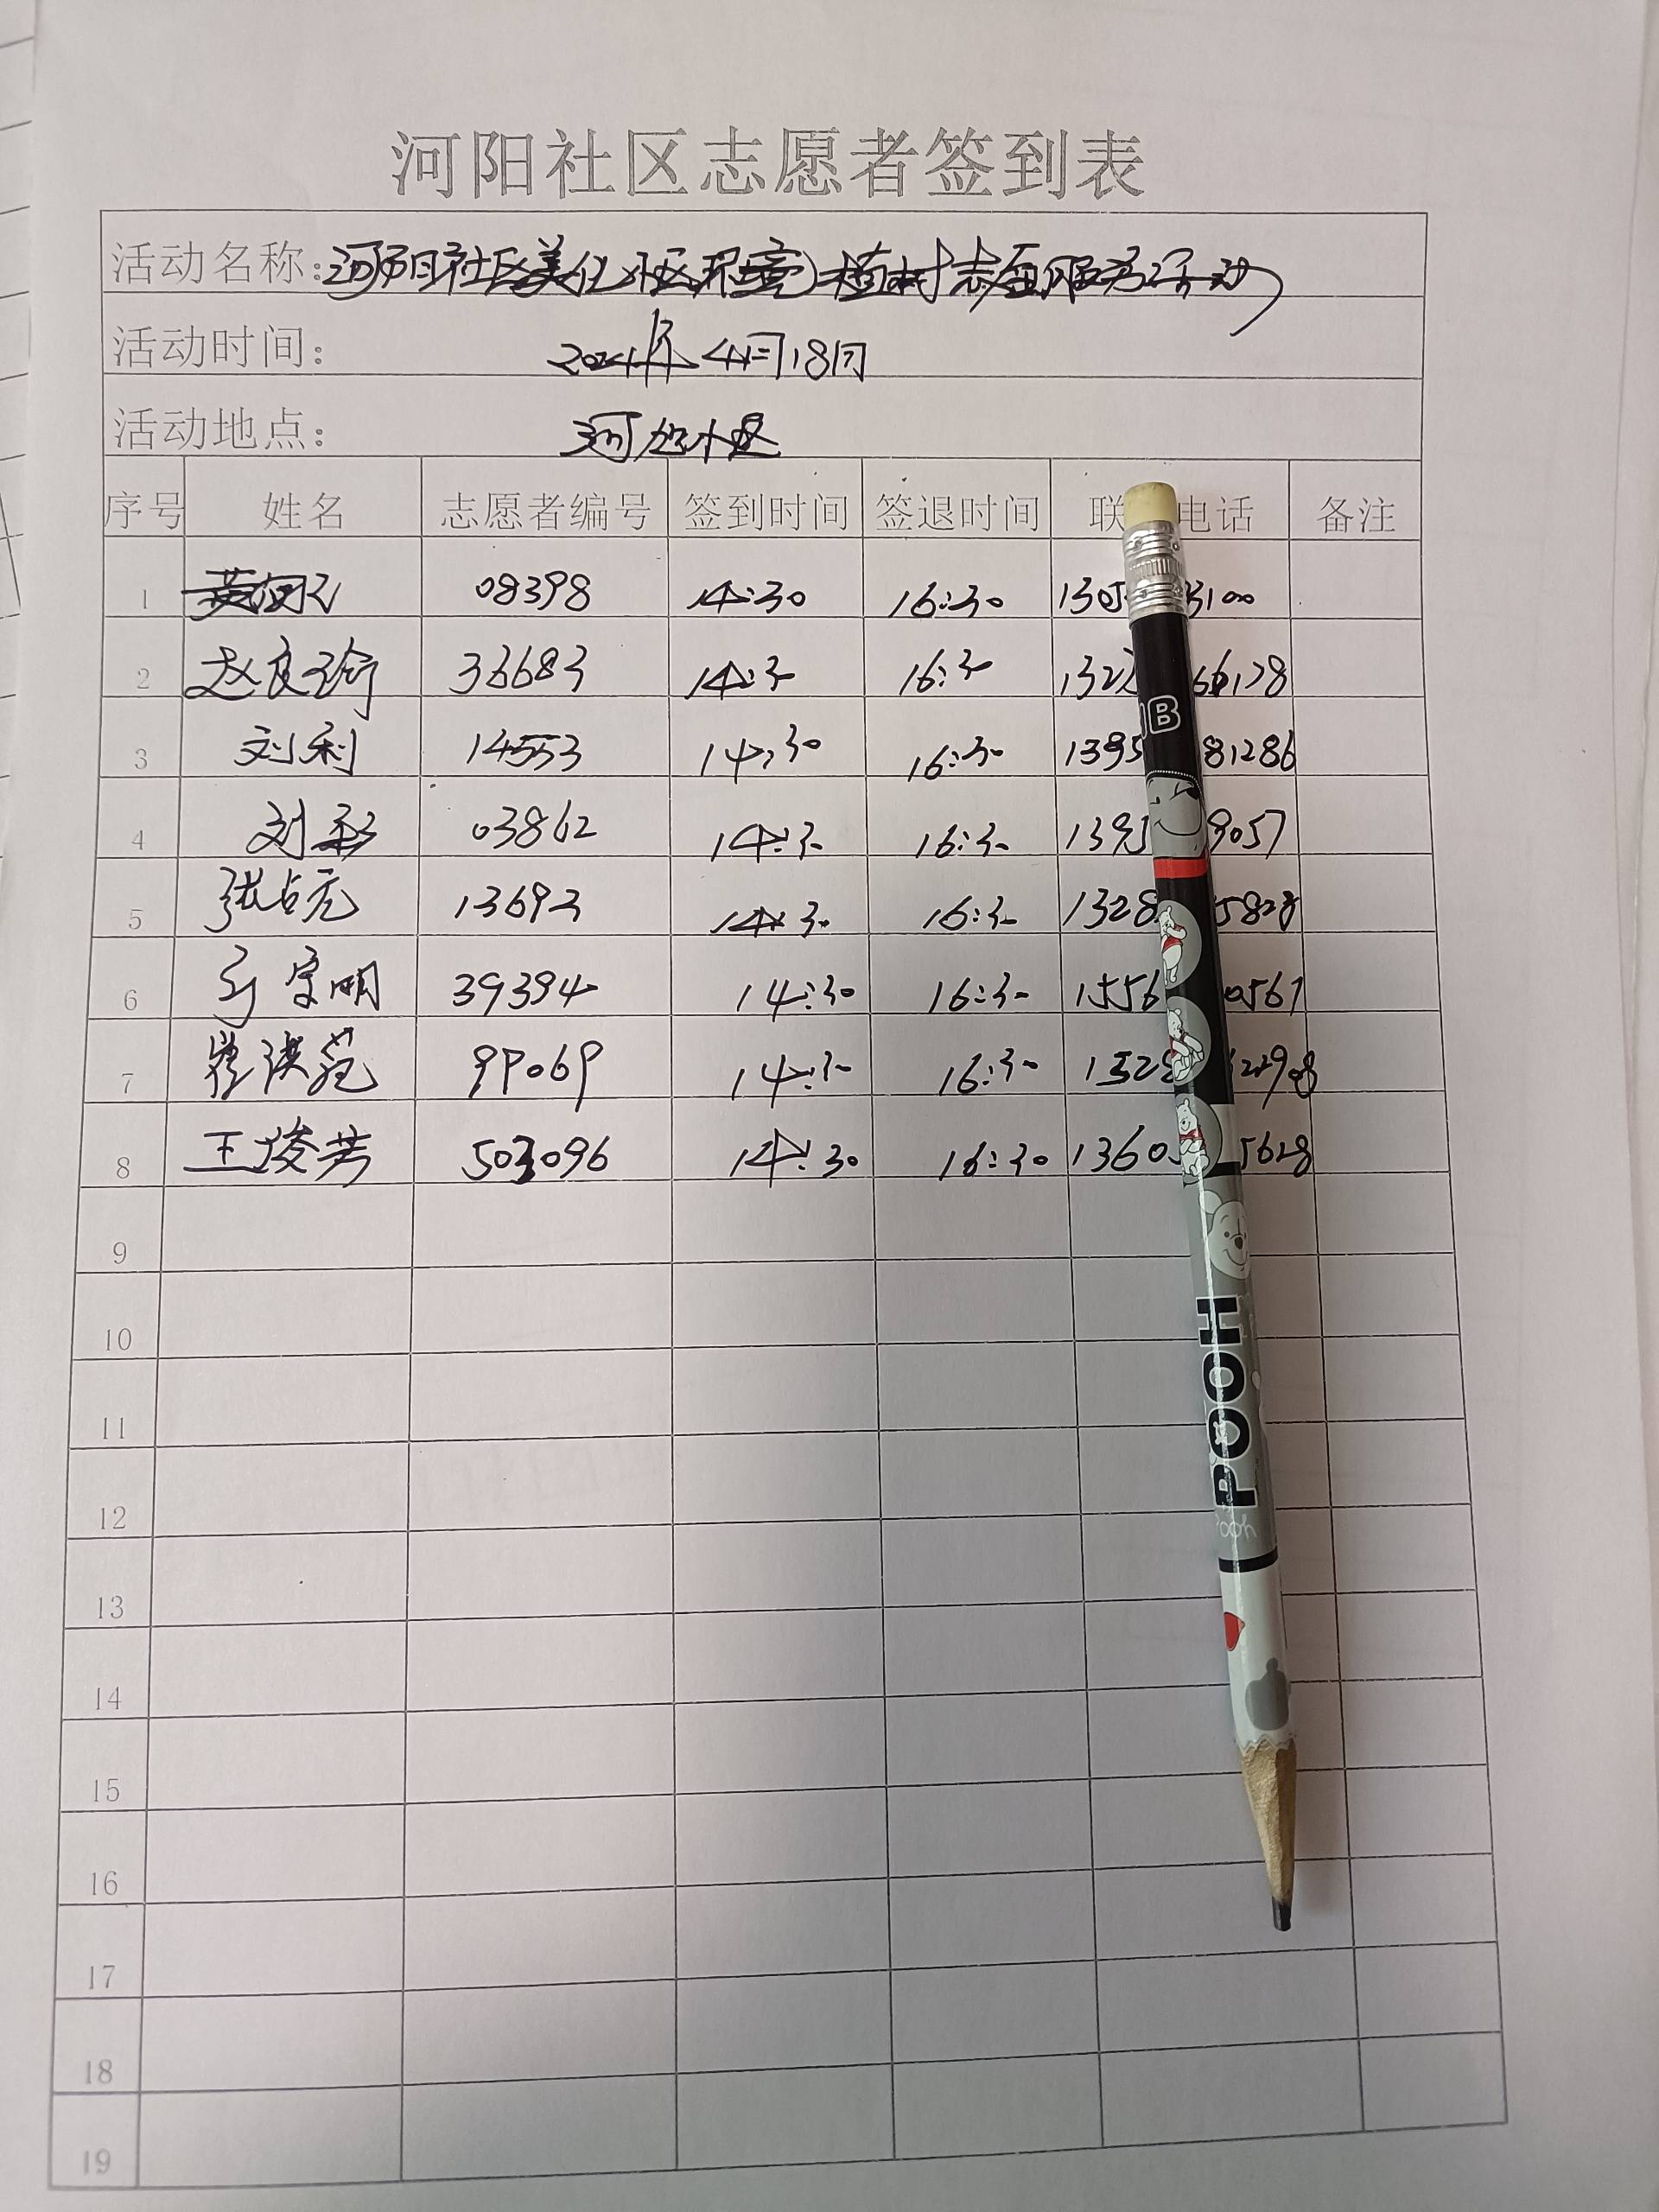 河阳社区志愿者签到表
活动名称:河阳社区美化小区环境植树志愿服务活动
活动时间: 2024年4月18日
活动地点: 小区
序号 姓名 志愿者编号 签到时间 签退时间 联 电话 备注
1 08398 14:30 16:30 1305 3100
2 赵良瑜 36683 14:30 16:30 132 66128
3 刘利 14553 14:30 16:30 1395 81286
4 刘 03862 14:30 16:30 1395 9057
5 张占元 13693 14:30 16:30 1328 5828
6 宗明 39394 14:30 16:30 1556 0567
7 崔洪苑 99069 14:30 16:30 1328 22908
8 王俊芳 503096 14:30 16:30 1360 5628
9
10
11
12
13
14
15
16
17
18
19
B
POOH
Pooh